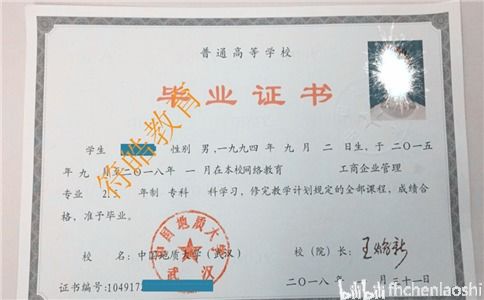 普通高等学校
毕业证书
学生 性别 男,一九九四 年 九 月 二 日生,于二〇一五
年 九 月至二〇一八年 一 月在本校网络教育 工商企业管理
专业 2. 年制 专科 科学习,修完教学计划规定的全部课程,成绩合
格,准予毕业。
校 名:中国地质大学(武汉) 校(院)长:
证书编号:10491
二〇一八年 月三十一日
符皓教育
中国地质大学
武汉
bilibili fhchenlaoshi